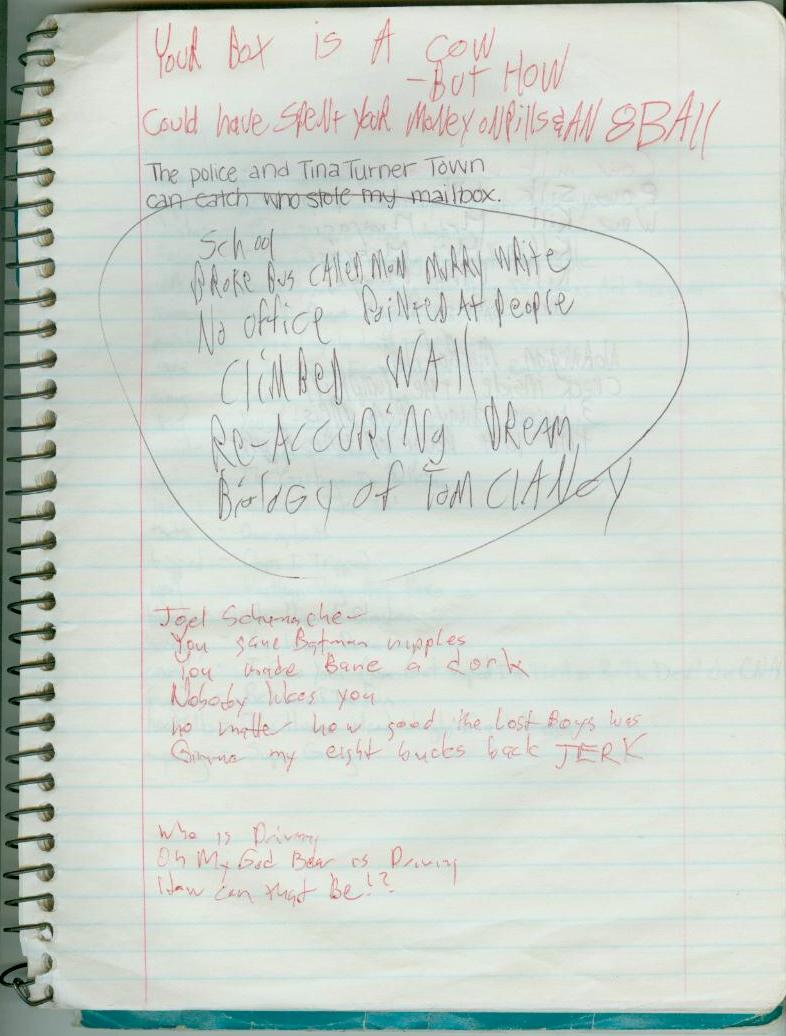 Your Box is A COW
-But HOW
Could have Spent Your Money on Pills & AN 8BAll
The police and Tina Turner Town
can catch who stole my mailbox.
School
Broke Bus CAlled Mom Murry Write
No office Pointed At People
ClimBed WAll
Re-AccuRiNg DReam
BioloGy of Tom ClANcy
Joel Schumacher
You gave Batman nipples
You made Bane a dork
Nobody likes you
no matter how good the Lost Boys was
Gimme my eight bucks back JERK
Who is Driving
Oh My God Bear is Driving
How can that Be!?